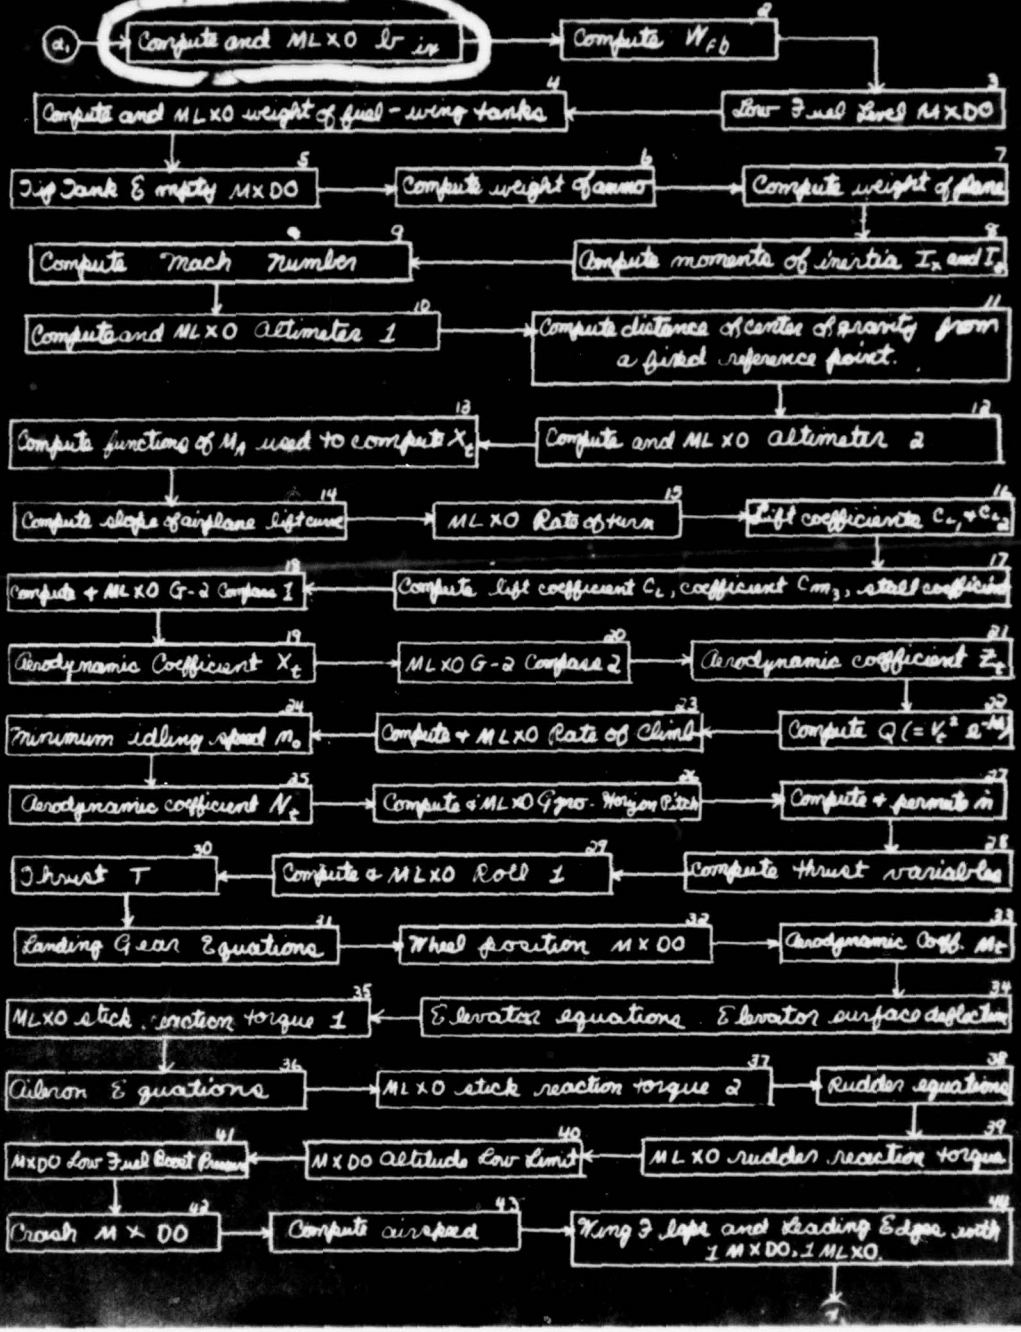 α₁
Compute and MLXO b in
2
Compute W_Fb
3
Low Fuel Level MXDO
4
Compute and MLXO weight of fuel - wing tanks
5
Tip Tank Empty MXDO
6
Compute weight of ammo
7
Compute weight of plane
8
Compute moments of inertia Iₓ and I
9
Compute Mach Number
10
Compute and MLXO Altimeter 1
11
Compute distance of center of gravity from
a fixed reference point.
12
Compute and MLXO altimeter 2
13
Compute functions of M used to compute X_t
14
Compute slope of airplane lift curve
15
MLXO Rate of turn
16
Lift coefficients C_L₁ + C_L₂
17
Compute lift coefficient C_L, coefficient C_m₃, stall coefficient
18
Compute + MLXO G-2 Compass 1
19
Aerodynamic Coefficient X_t
20
MLXO G-2 Compass 2
21
Aerodynamic coefficient Z_t
22
Compute Q (= V_t² e
23
Compute + MLXO Rate of Climb
24
Minimum idling speed n₀
25
Aerodynamic coefficient N_t
26
Compute & MLXO Gyro-Horizon Pitch
27
Compute + permute n
28
Compute thrust variables
29
Compute & MLXO Roll 1
30
Thrust T
31
Landing Gear Equations
32
Wheel position MXDO
33
Aerodynamic Coeff. M_t
34
Elevator equations Elevator surface deflection
35
MLXO stick reaction torque 1
36
Aileron Equations
37
MLXO stick reaction torque 2
38
Rudder equations
39
MLXO rudder reaction torque
40
MXDO Altitude Low Limit
41
MXDO Low Fuel Boost Pressure
42
Crash MXDO
43
Compute airspeed
44
Wing Flaps and Leading Edges with
1 MXDO, 1 MLXO.